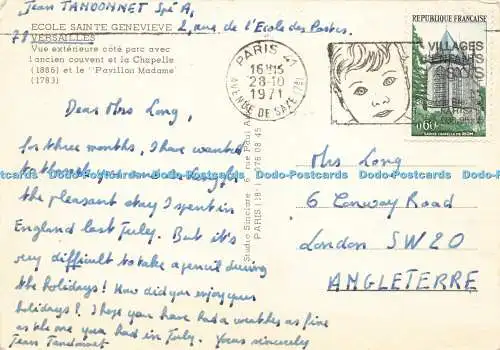 Jean TANDONNET Spé A,
ECOLE SAINTE GENEVIEVE 2, rue de l'Ecole des Postes
78 VERSAILLES
Vue extérieure côté parc avec
l'ancien couvent et la Chapelle
(1885) et le "Pavillon Madame"
(1783)
Dear Mrs Long,
for three months, I have wanted
to thank you
the pleasant stay I spent in
England last July. But it's
very difficult to take a pencil during
the holidays! How did you enjoy your
holidays? I hope you have had a weather as fine
as the one you had in July. Yours sincerely
Jean Tandonnet
Studio Sinclare
PARIS (18e)
PARIS 41
16H15
28-10
1971
AVENUE DE SAXE (7e)
REPUBLIQUE FRANÇAISE
VILLAGES
D'ENFANTS
SOS
0,60
SAINTE CHAPELLE DE RIOM
Mrs Long
6 Conway Road
London SW20
ANGLETERRE
Postcards Postcards Postcards Postcards Postcards